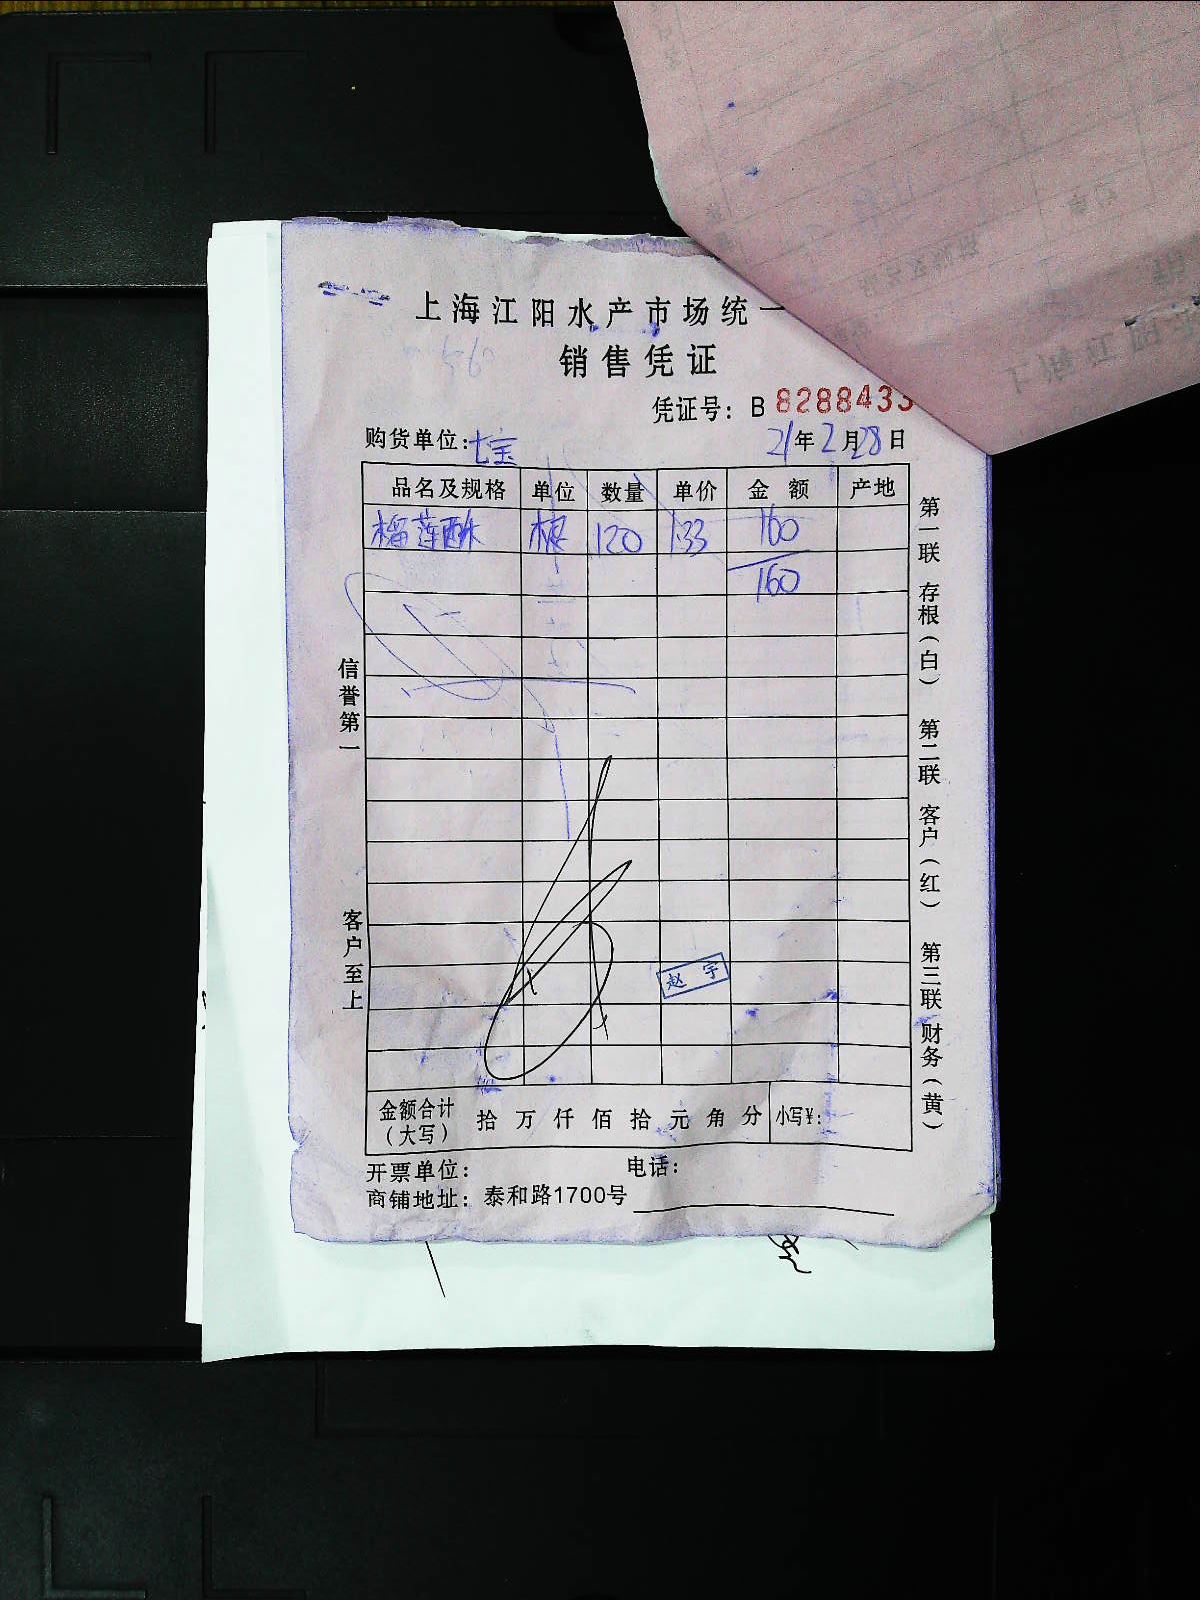 上海江阳水产市场统一
销售凭证
凭证号：B 8288433
购货单位：七宝 21年2月28日
品名及规格 单位 数量 单价 金额 产地
榴莲酥 120 1.33 160
160
信誉第一
客户至上
第一联 存根（白） 第二联 客户（红） 第三联 财务（黄）
赵宇
金额合计（大写） 拾 万 仟 佰 拾 元 角 分 小写¥：
开票单位： 电话：
商铺地址：泰和路1700号